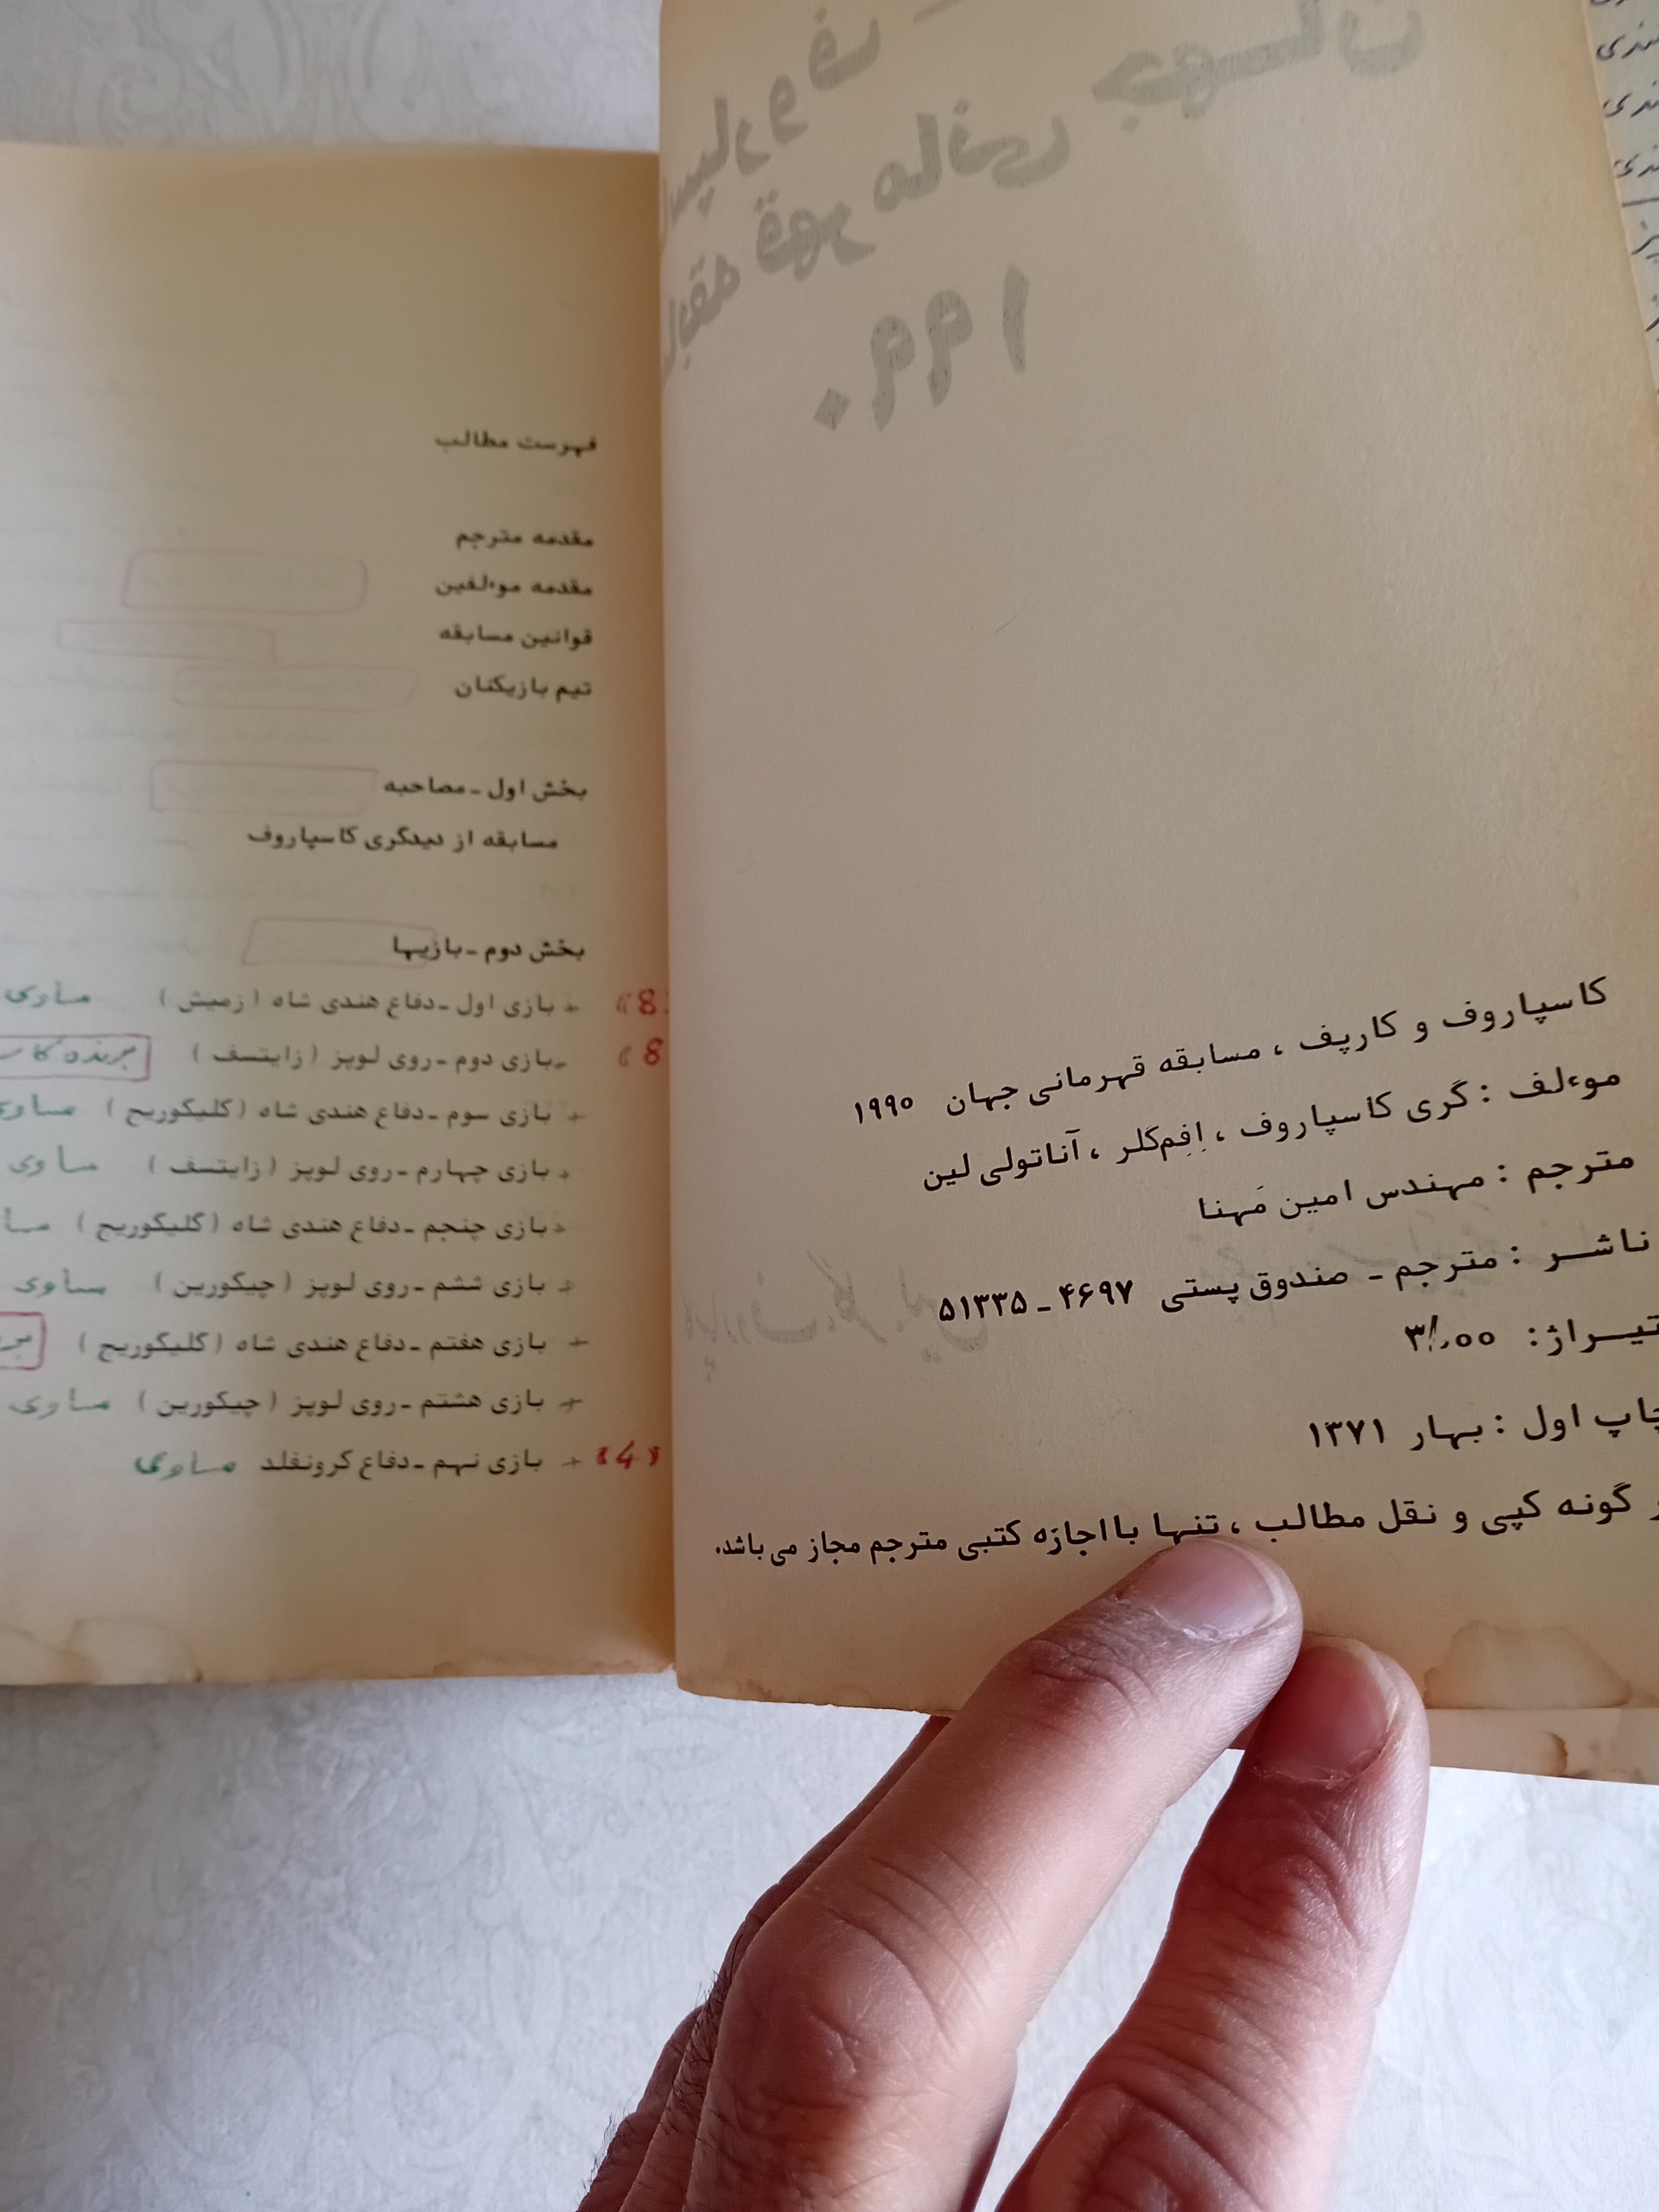 کاسپاروف و کارپف ، مسابقه قهرمانی جهان ۱۹۹۰
موءلف : گری کاسپاروف ، اِفِم‌گلر ، آناتولی لین
مترجم : مهندس امین مَهنا
ناشر : مترجم ـ صندوق پستی ۴۶۹۷ ـ ۵۱۳۳۵
تیراژ:
چاپ اول : بهار ۱۳۷۱
گونه کپی و نقل مطالب ، تنها با اجازه کتبی مترجم مجاز می‌باشد.
فهرست مطالب
مقدمه مترجم
مقدمه موءلفین
قوانین مسابقه
تیم بازیکنان
بخش اول ـ مصاحبه
مسابقه از دیدگری کاسپاروف
بخش دوم ـ بازیها
«8» + بازی اول ـ دفاع هندی شاه ( زمیش ) مساوی
«8 ـ بازی دوم ـ روی لوپز ( زایتسف ) برنده
+ بازی سوم ـ دفاع هندی شاه ( گلیگوریچ ) مساوی
+ بازی چهارم ـ روی لوپز ( زایتسف ) مساوی
+ بازی چنجم ـ دفاع هندی شاه ( گلیگوریچ )
+ بازی ششم ـ روی لوپز ( چیگورین ) مساوی
+ بازی هفتم ـ دفاع هندی شاه ( گلیگوریچ )
+ بازی هشتم ـ روی لوپز ( چیگورین ) مساوی
«4» + بازی نهم ـ دفاع گرونفلد مساوی